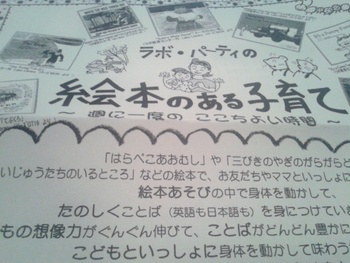 ラボ・パーティの
絵本のある子育て
～週に一度の ここちよい時間～
「はらぺこあおむし」や「三びきのやぎのがらがらど
いじゅうたちのいるところ」などの絵本で、お友だちやママといっしょに
絵本あそびの中で身体を動かして、
たのしくことば(英語も日本語も)を身につけていき
もの想像力がぐんぐん伸びて、ことばがどんどん豊かに
こどもといっしょに身体を動かして味わう